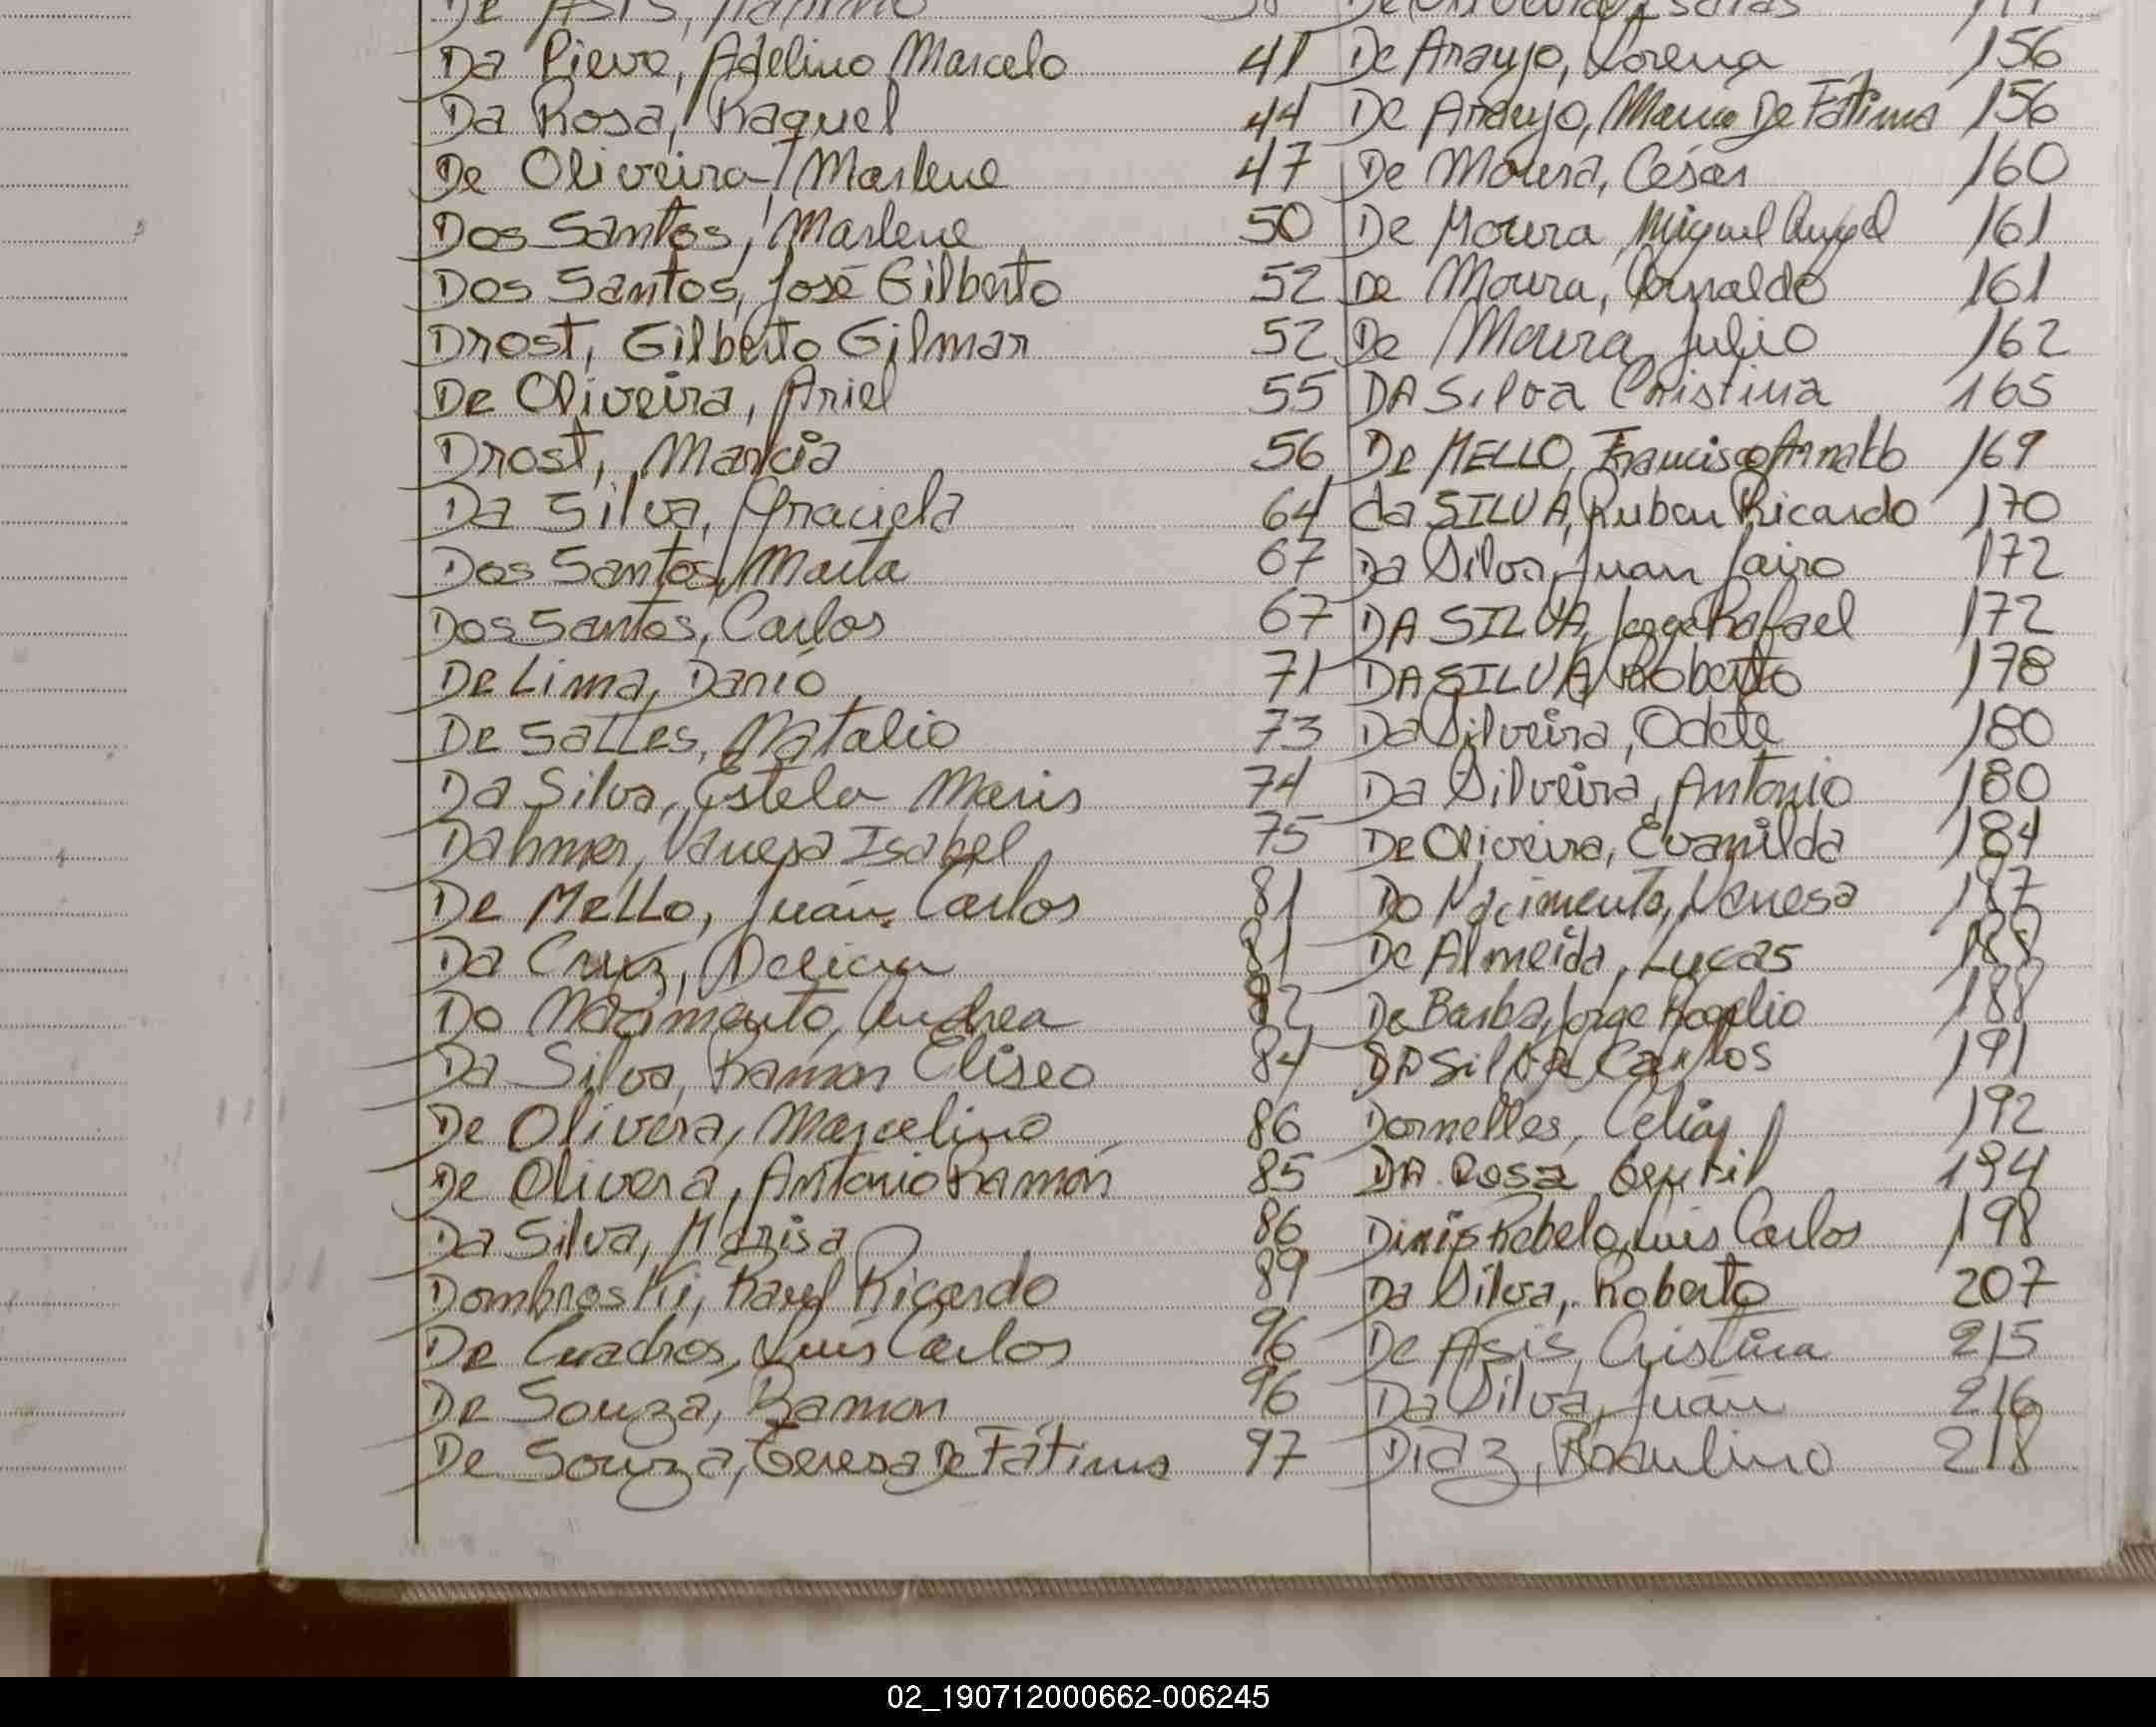 De Asis,
Da Pieve, Adelino Marcelo 41
Da Rosa, Raquel 44
De Oliveira, Marlene 47
Dos Santos, Marlene 50
Dos Santos, José Gilberto 52
Drost, Gilberto Gilmar 52
De Oliveira, Ariel 55
Drost, Marcia 56
Da Silva, Graciela 64
Dos Santos, Marta 67
Dos Santos, Carlos 67
De Lima, Dario 71
De Salles, Natalio 73
Da Silva, Estela Maris 74
Dahmer, Vanesa Isabel 75
De Mello, Juán Carlos 81
Da Cruz, 81
Do Nacimento, Andrea 82
Da Silva, Ramon Eliseo 84
De Olivera, Marcelino 86
De Olivera, Antonio Ramón 85
Da Silva, Marisa 86
Dombroski, Raul Ricardo 89
De Cuadros, Luis Carlos 96
De Souza, Ramon 96
De Souza, Teresa De Fátima 97
De Araujo, Lorena 156
De Araujo, Maria De Fátima 156
De Moura, César 160
De Moura, Miguel Angel 161
De Moura, Arnaldo 161
De Moura, Julio 162
DA Silva Cristina 165
De MELLO, Francisco Arnaldo 169
da SILVA, Ruben Ricardo 170
Da Silva, Juan Jairo 172
DA SILVA, Jorge Rafael 172
DA SILVA, Roberto 178
Da Silveira, Odete 180
Da Silveira, Antonio 180
De Oliveira, Evanilda 184
Do Nacimento, Vanesa 187
De Almeida, Lucas 188
De Barba, Jorge Rogelio 188
DA Silva Carlos 191
Dornelles, Celia 192
DA Rosa Gentil 194
Dinis Rebelo, Luis Carlos 198
Da Silva, Roberto 207
De Asis, Cristina 215
Da Silva, Juán 216
Diaz, Paulino 218
02_190712000662-006245